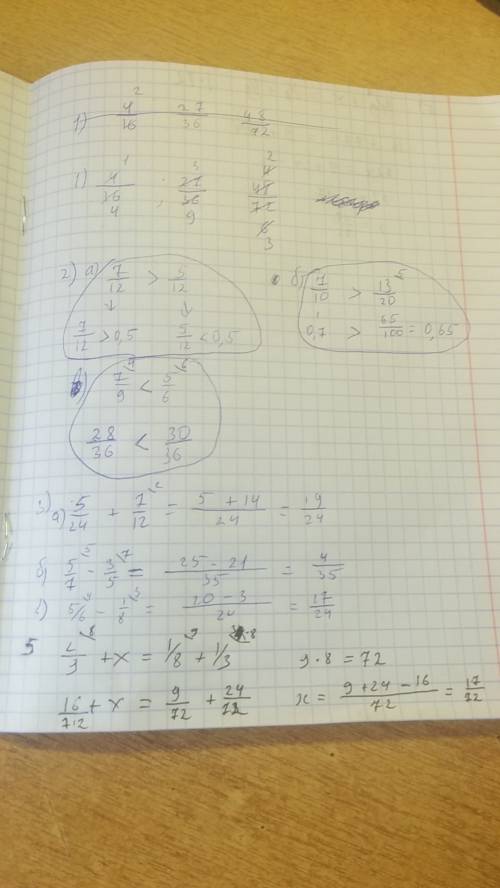 1) 4/16 27/36 48/72 2
1) 4/16 1 4 ; 27/36 3 9 48/72 4 2 6 3
2) а) 7/12 > 5/12 б) 7/10 > 13/20 5
↓ ↓
7/12 > 0,5 5/12 < 0,5 0,7 > 65/100 = 0,65
7/9 4 < 5/6 6
28/36 < 30/36
3) а) 5/24 + 7/12 2 = 5 + 14/24 = 19/24
б) 5/7 5 - 3/5 7 = 25 - 21/35 = 4/35
5/6 4 - 1/8 3 = 20 - 3/24 = 17/24
5 2/9 8 + x = 1/8 9 + 1/3 9·8 = 72
16/72 + x = 9/72 + 24/72 x = 9 + 24 - 16/72 = 17/72